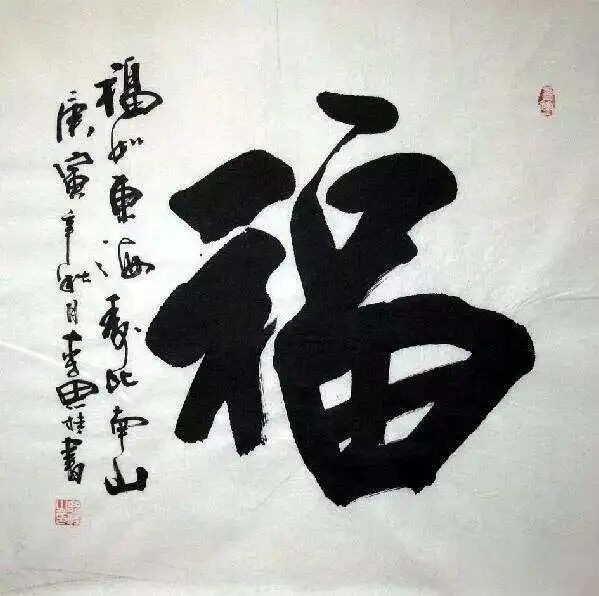 福
福如东海寿比南山
庚寅年秋月李思娃書